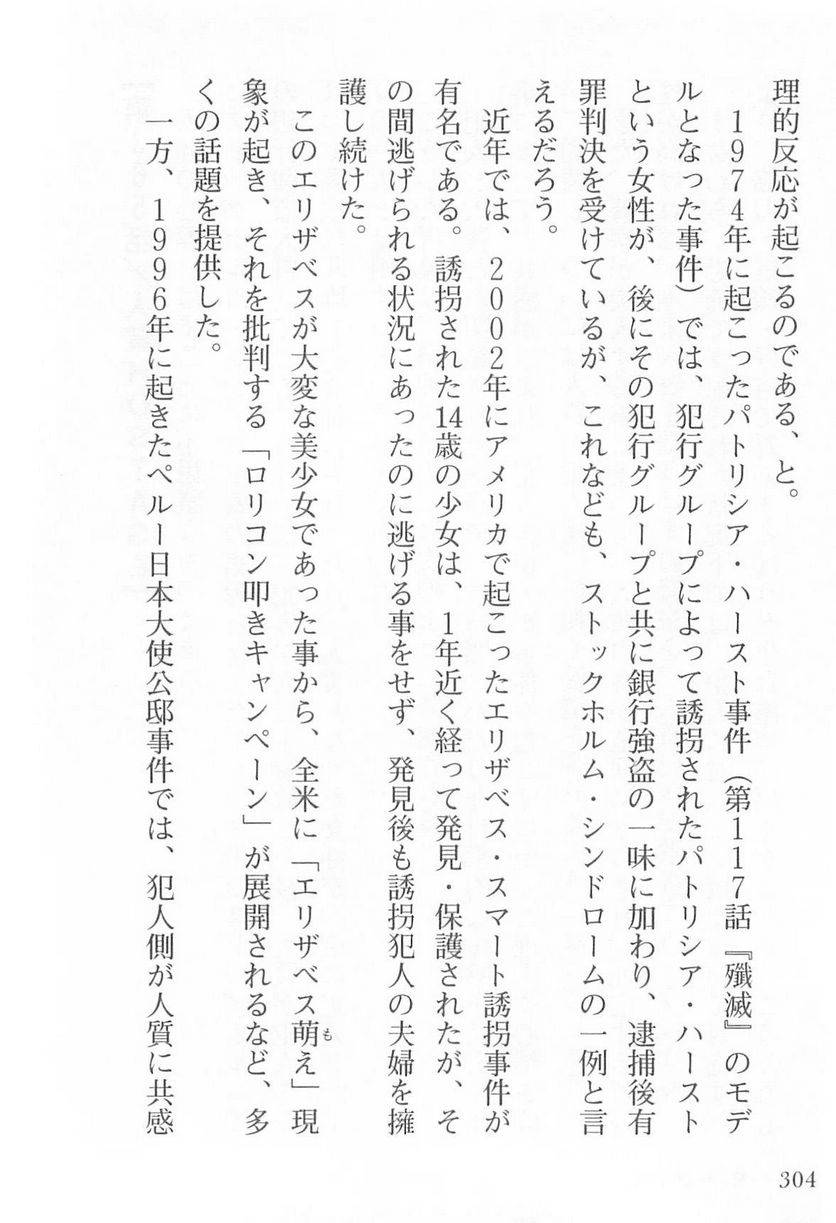 理的反応が起こるのである、と。
1974年に起こったパトリシア・ハースト事件（第117話『殲滅』のモデ
ルとなった事件）では、犯行グループによって誘拐されたパトリシア・ハースト
という女性が、後にその犯行グループと共に銀行強盗の一味に加わり、逮捕後有
罪判決を受けているが、これなども、ストックホルム・シンドロームの一例と言
えるだろう。
近年では、2002年にアメリカで起こったエリザベス・スマート誘拐事件が
有名である。誘拐された14歳の少女は、1年近く経って発見・保護されたが、そ
の間逃げられる状況にあったのに逃げる事をせず、発見後も誘拐犯人の夫婦を擁
護し続けた。
このエリザベスが大変な美少女であった事から、全米に「エリザベス萌え」現
象が起き、それを批判する「ロリコン叩きキャンペーン」が展開されるなど、多
くの話題を提供した。
一方、1996年に起きたペルー日本大使公邸事件では、犯人側が人質に共感
304